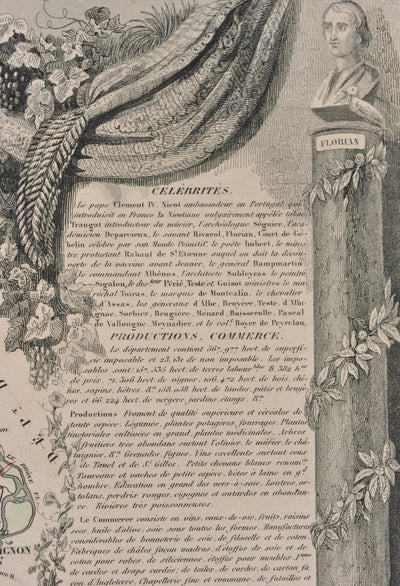 FLORIAN
CÉLÉBRITÉS.
Le pape Clement IV. Nicot ambassadeur en Portugal qui
introduisit en France la Nicotiane vulgairement appelée tabac
Traugat introducteur du mûrier, l'archéologue Séguier, l'aca-
démicien Deparcieux, le savant Rivarol, Florian, Court de Gé-
belin célèbre par son Monde Primitif, le poëte Imbert, le mini-
stre protestant Rabaut de St. Etienne auquel on doit la décou-
verte de la vaccine avant Jenner, le général Dampmartin
le commandant Albénos, l'architecte Subleyras le peintre
Sigalon, le des Périé, Teste et Guizot ministres le ma-
réchal Toiras, le marquis de Montcalm, le chevalier
d'Assas, les généraux d'Albe, Bruyère, Teste, d'Albi-
gnac, Sorbier, Brugière, Ménard, Buisserolle, Pascal
de Vallougue, Meynadier, et le col. Boyer de Peyrelau.
PRODUCTIONS, COMMERCE.
Le département contient 567,977 hect. de superfi-
cie imposable et 23,131 de non imposable. Les impo-
sables sont: 157,535 hect. de terres labour. 8,382 ht
de prés, 71,306 hect. de vignes, 106,472 hect. de bois, chê-
nes, sapins, hêtres, 158,038 hect. de landes, pâtis et bruyè-
res et 66,224 hect. de vergers, jardins, étangs, &a.
Productions Froment de qualité supérieure et céréales de
toute espèce. Légumes, plantes potagères, fourrages, Plantes
tinctoriales cultivées en grand, plantes médicinales. Arbres
fruitiers très abondans surtout l'olivier, le mûrier, le châ-
taignier, &a. Grenades, figues. Vins excellents surtout ceux
de Tavel et de St. Gilles. Petits chevaux blancs renom.
Taureaux et vaches de petite espèce, bêtes à laine en g.
nombre. Education en grand des vers-à-soie, loutres, or-
tolans, perdrix rouges, cigognes et outardes en abondan-
ce. Rivières très poissonneuses.
Le Commerce consiste en vins, eaux-de-vie, fruits, raisins
secs, huile d'olive, soie sous toutes les formes. Manufactures
considérables de bonneterie de soie, de filoselle et de coton
Fabriques de châles façon madras; d'étoffes de soie et de
coton pour robes, de siliciennes, étoffes pour meubles
de cardes et draps cardés; de toiles, de cardes, de carton fa
con d'Ingleterre, Chapellerie fine et commune, de futailles et
DÉP
IGNON